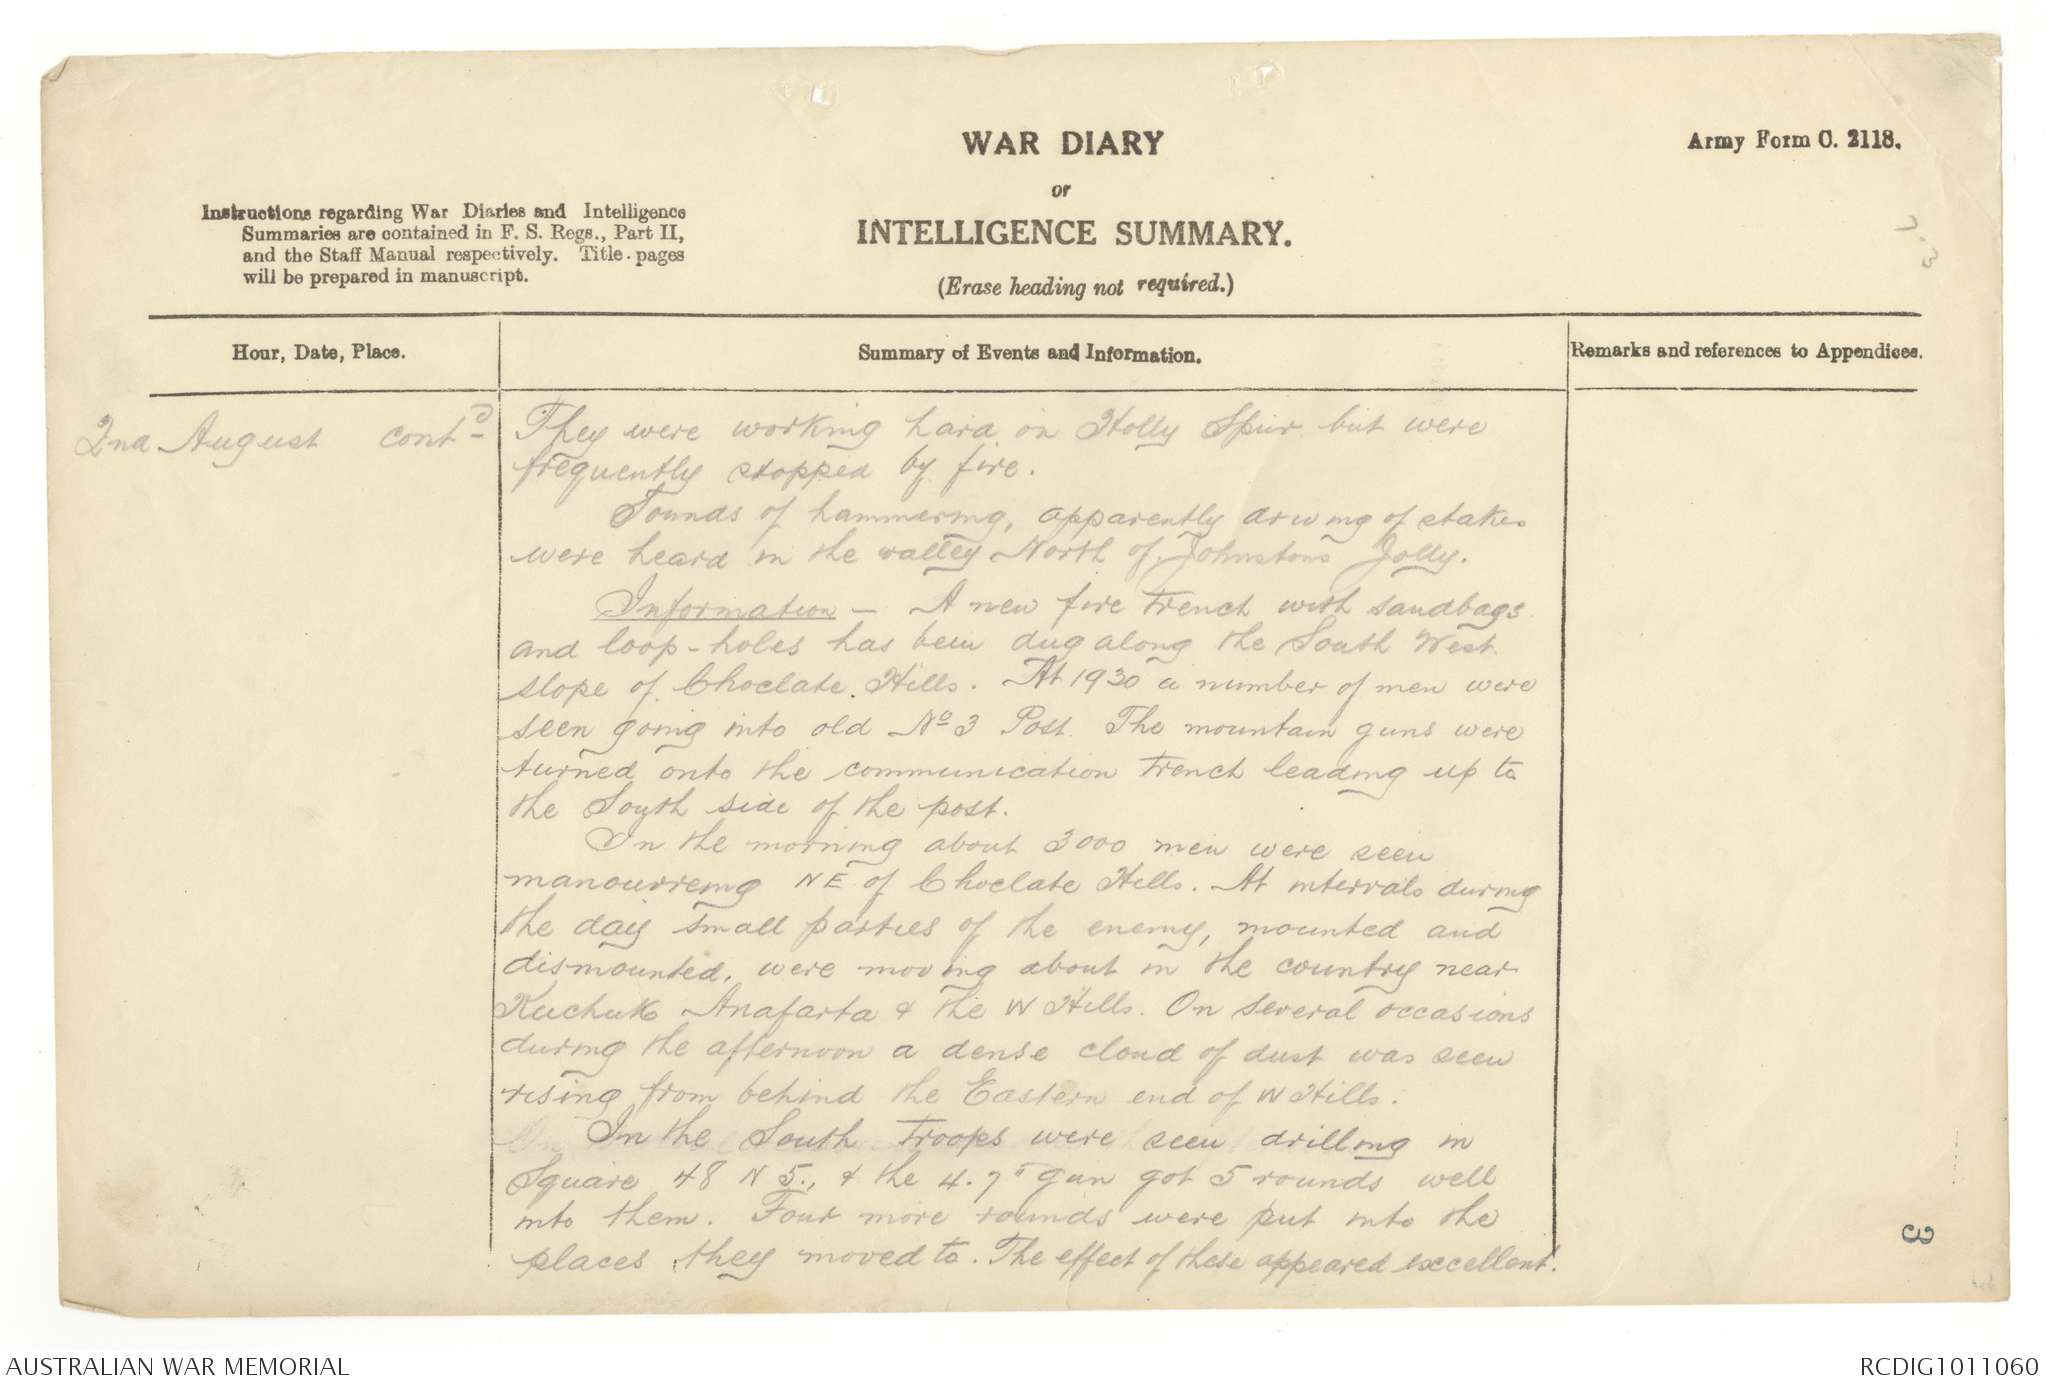 WAR DIARY
or
INTELLIGENCE SUMMARY.
(Erase heading not required.)
Army Form C. 2118.
Instructions regarding War Diaries and Intelligence
Summaries are contained in F. S. Regs., Part II,
and the Staff Manual respectively. Title pages
will be prepared in manuscript.
Hour, Date, Place.
Summary of Events and Information.
Remarks and references to Appendices.
2nd August contd
They were working hard on Holly Spur but were
frequently stopped by fire.
Sounds of hammering, apparently driving of stakes
were heard in the valley North of Johnstons Jolly.
Information - A new fire trench with sandbags
and loop-holes has been dug along the South West
slope of Choclate Hills. At 1930 a number of men were
seen going into old No 3 Post. The mountain guns were
turned onto the communication trench leading up to
the South side of the post.
In the morning about 3000 men were seen
manouvreing NE of Choclate Hills. At intervals during
the day small parties of the enemy, mounted and
dismounted, were moving about in the country near
Kuchuk Anafarta & the W Hills. On several occasions
during the afternoon a dense cloud of dust was seen
rising from behind the Eastern end of W Hills.
In the South troops were seen drilling in
Square 48 N 5., & the 4.7" gun got 5 rounds well
into them. Four more rounds were put into the
places they moved to. The effect of these appeared excellent.
3
AUSTRALIAN WAR MEMORIAL
RCDIG1011060